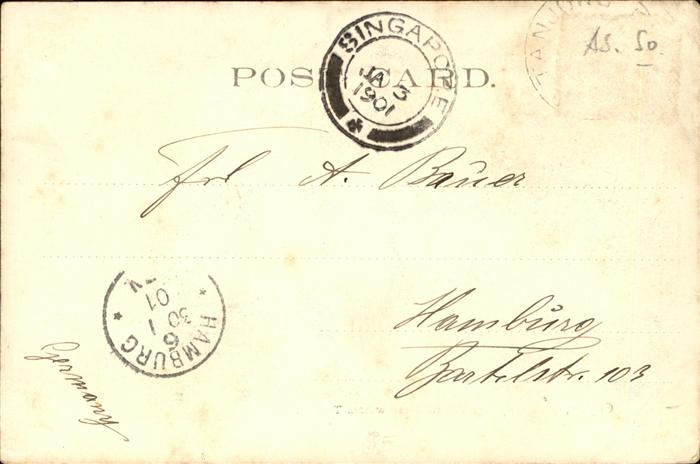 POST CARD.
SINGAPORE
JA 3
1901
TANJONG
AS. So
Frl A. Bauer
Hamburg
Bartelstr. 103
Germany
HAMBURG
6 1
30
01